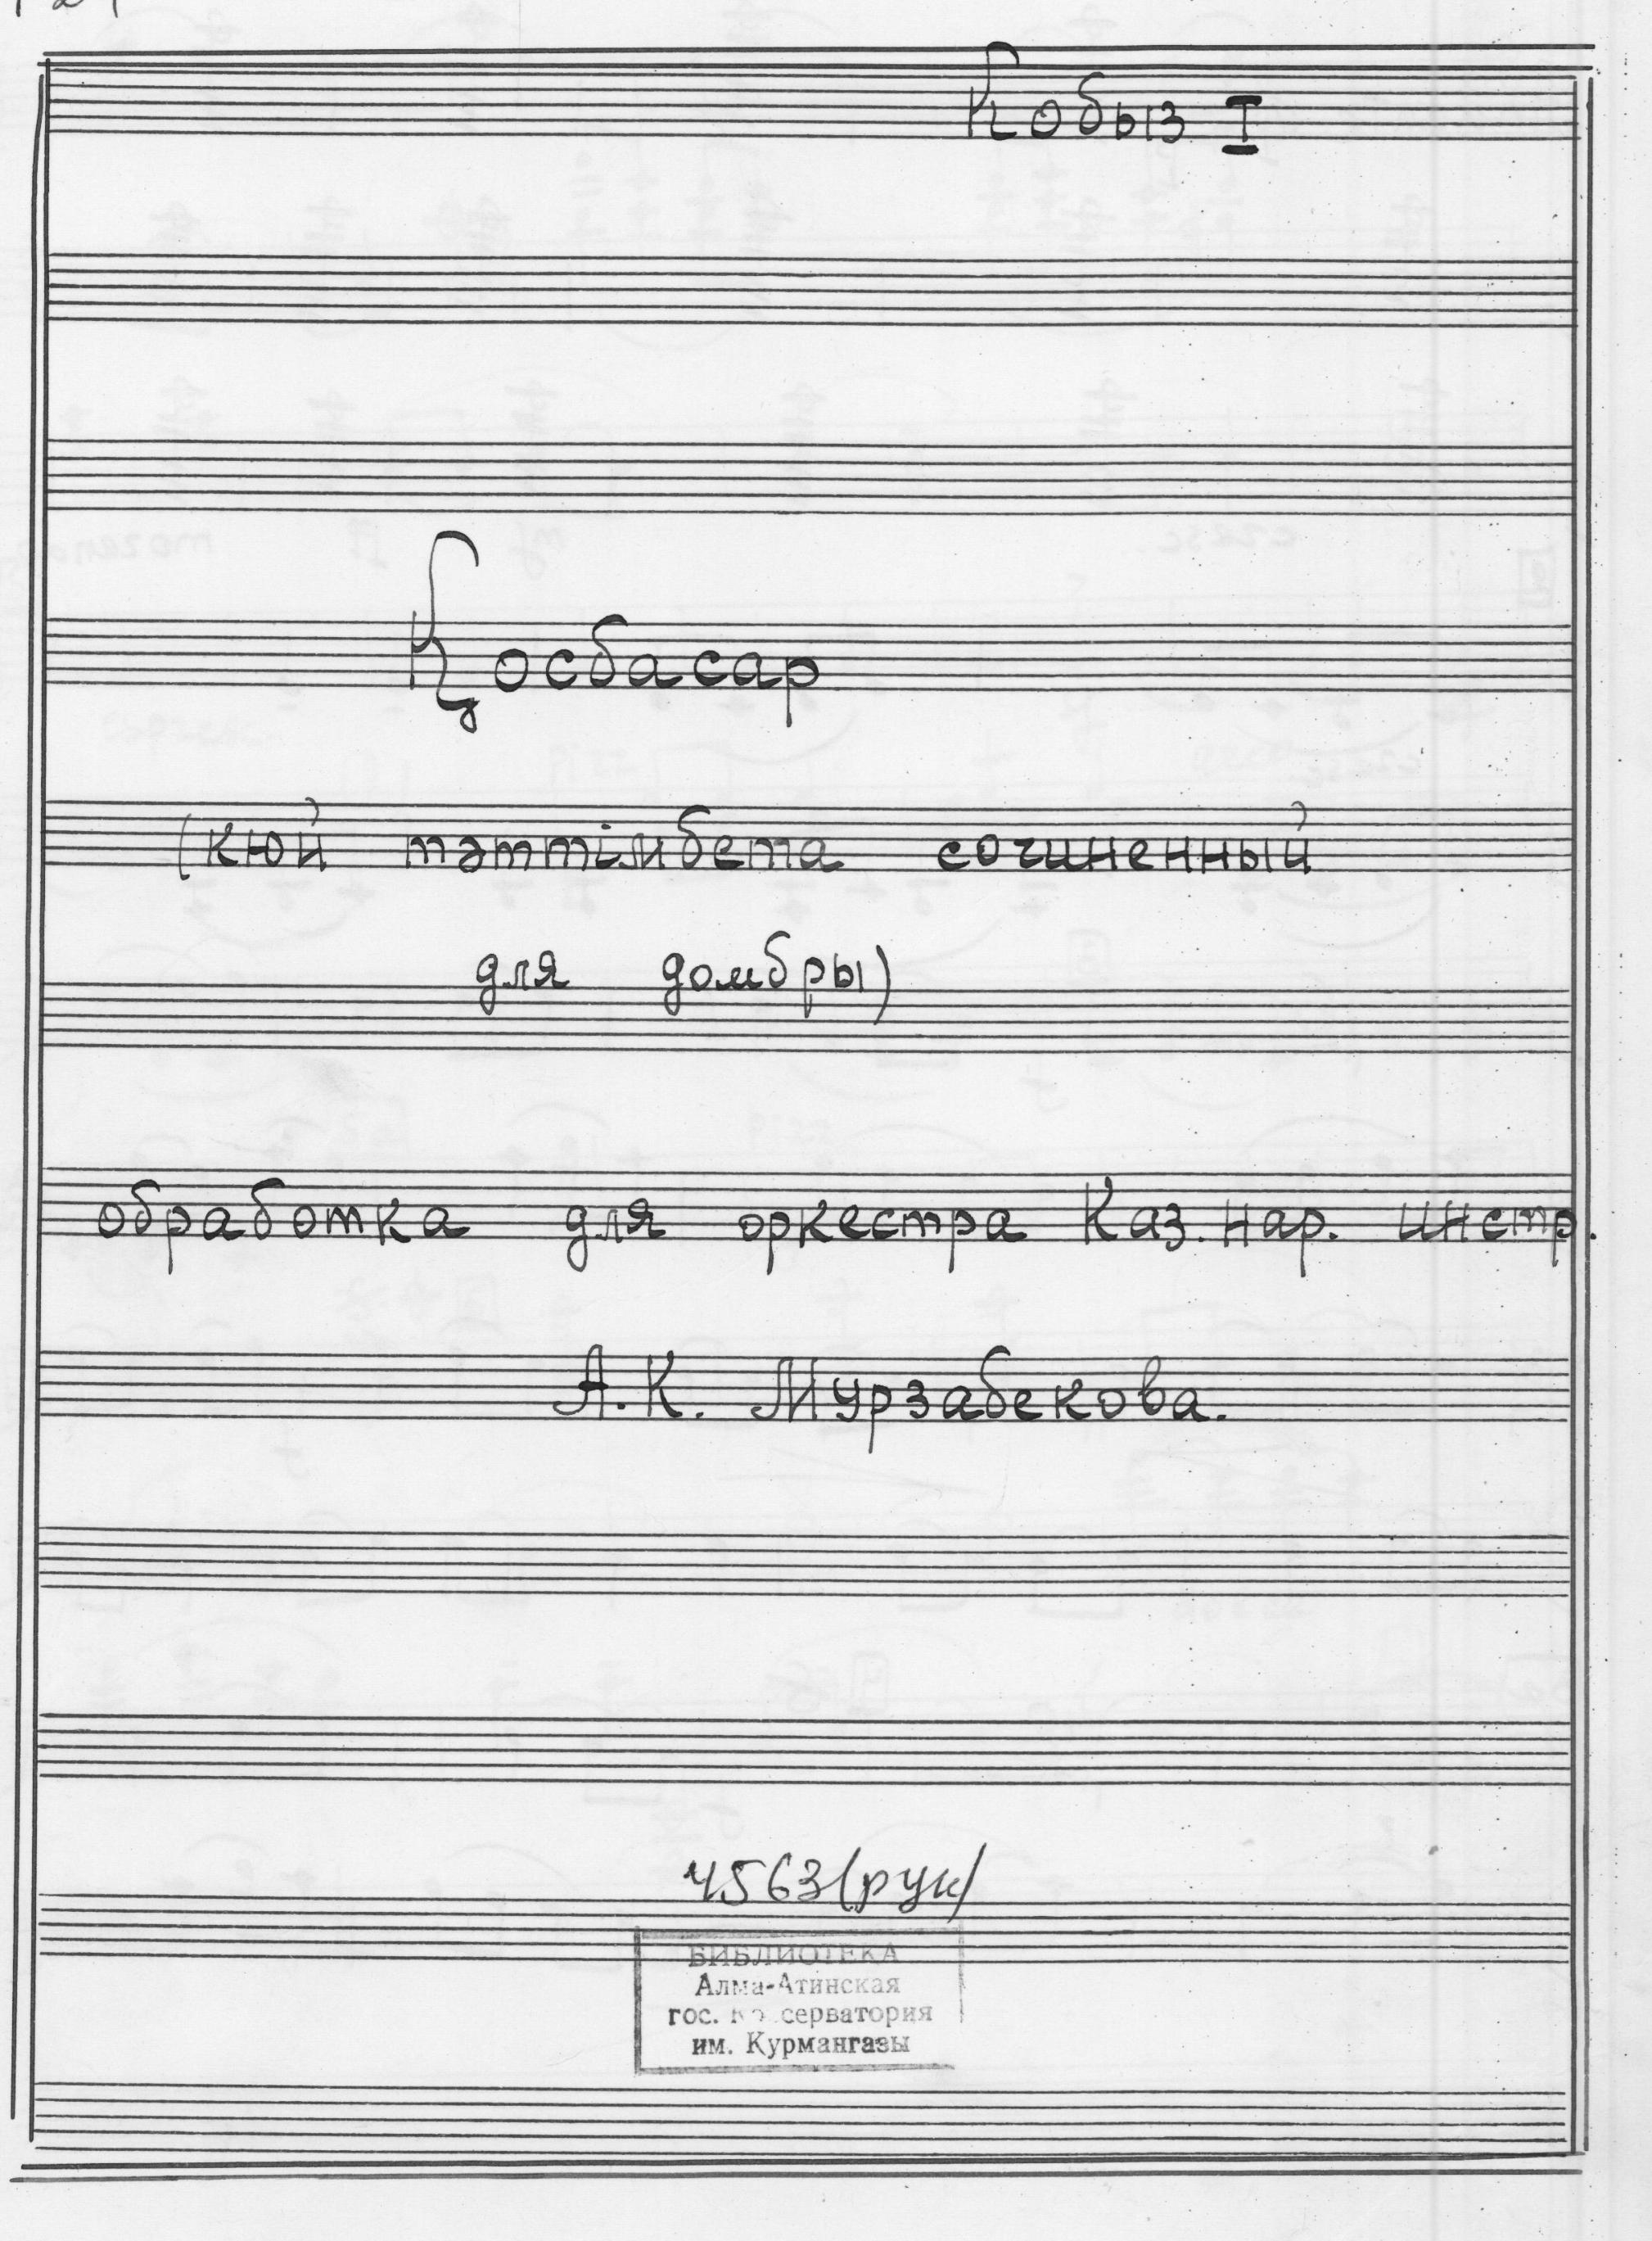 Кобыз I
Қосбасар
(кюй тәттімбета сочиненный
для домбры)
обработка для оркестра Каз. нар. инстр.
А.К. Мурзабекова.
4563 (рук)
БИБЛИОТЕКА
Алма-Атинская
гос. консерватория
им. Курмангазы